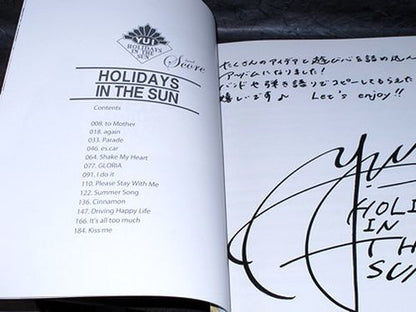 YUI
HOLIDAYS
IN THE
SUN
Band
Score
HOLIDAYS
IN THE SUN
Contents
008. to Mother
018. again
033. Parade
046. es.car
064. Shake My Heart
077. GLORIA
091. I do it
110. Please Stay With Me
122. Summer Song
136. Cinnamon
147. Driving Happy Life
166. It's all too much
184. Kiss me
たくさんのアイデアと遊び心を詰め込んだ
アルバムになりました！
バンドや弾き語りでコピーしてもらえたら
嬉しいです♪ Let's enjoy!!
yui
HOLI
IN
TH
SU